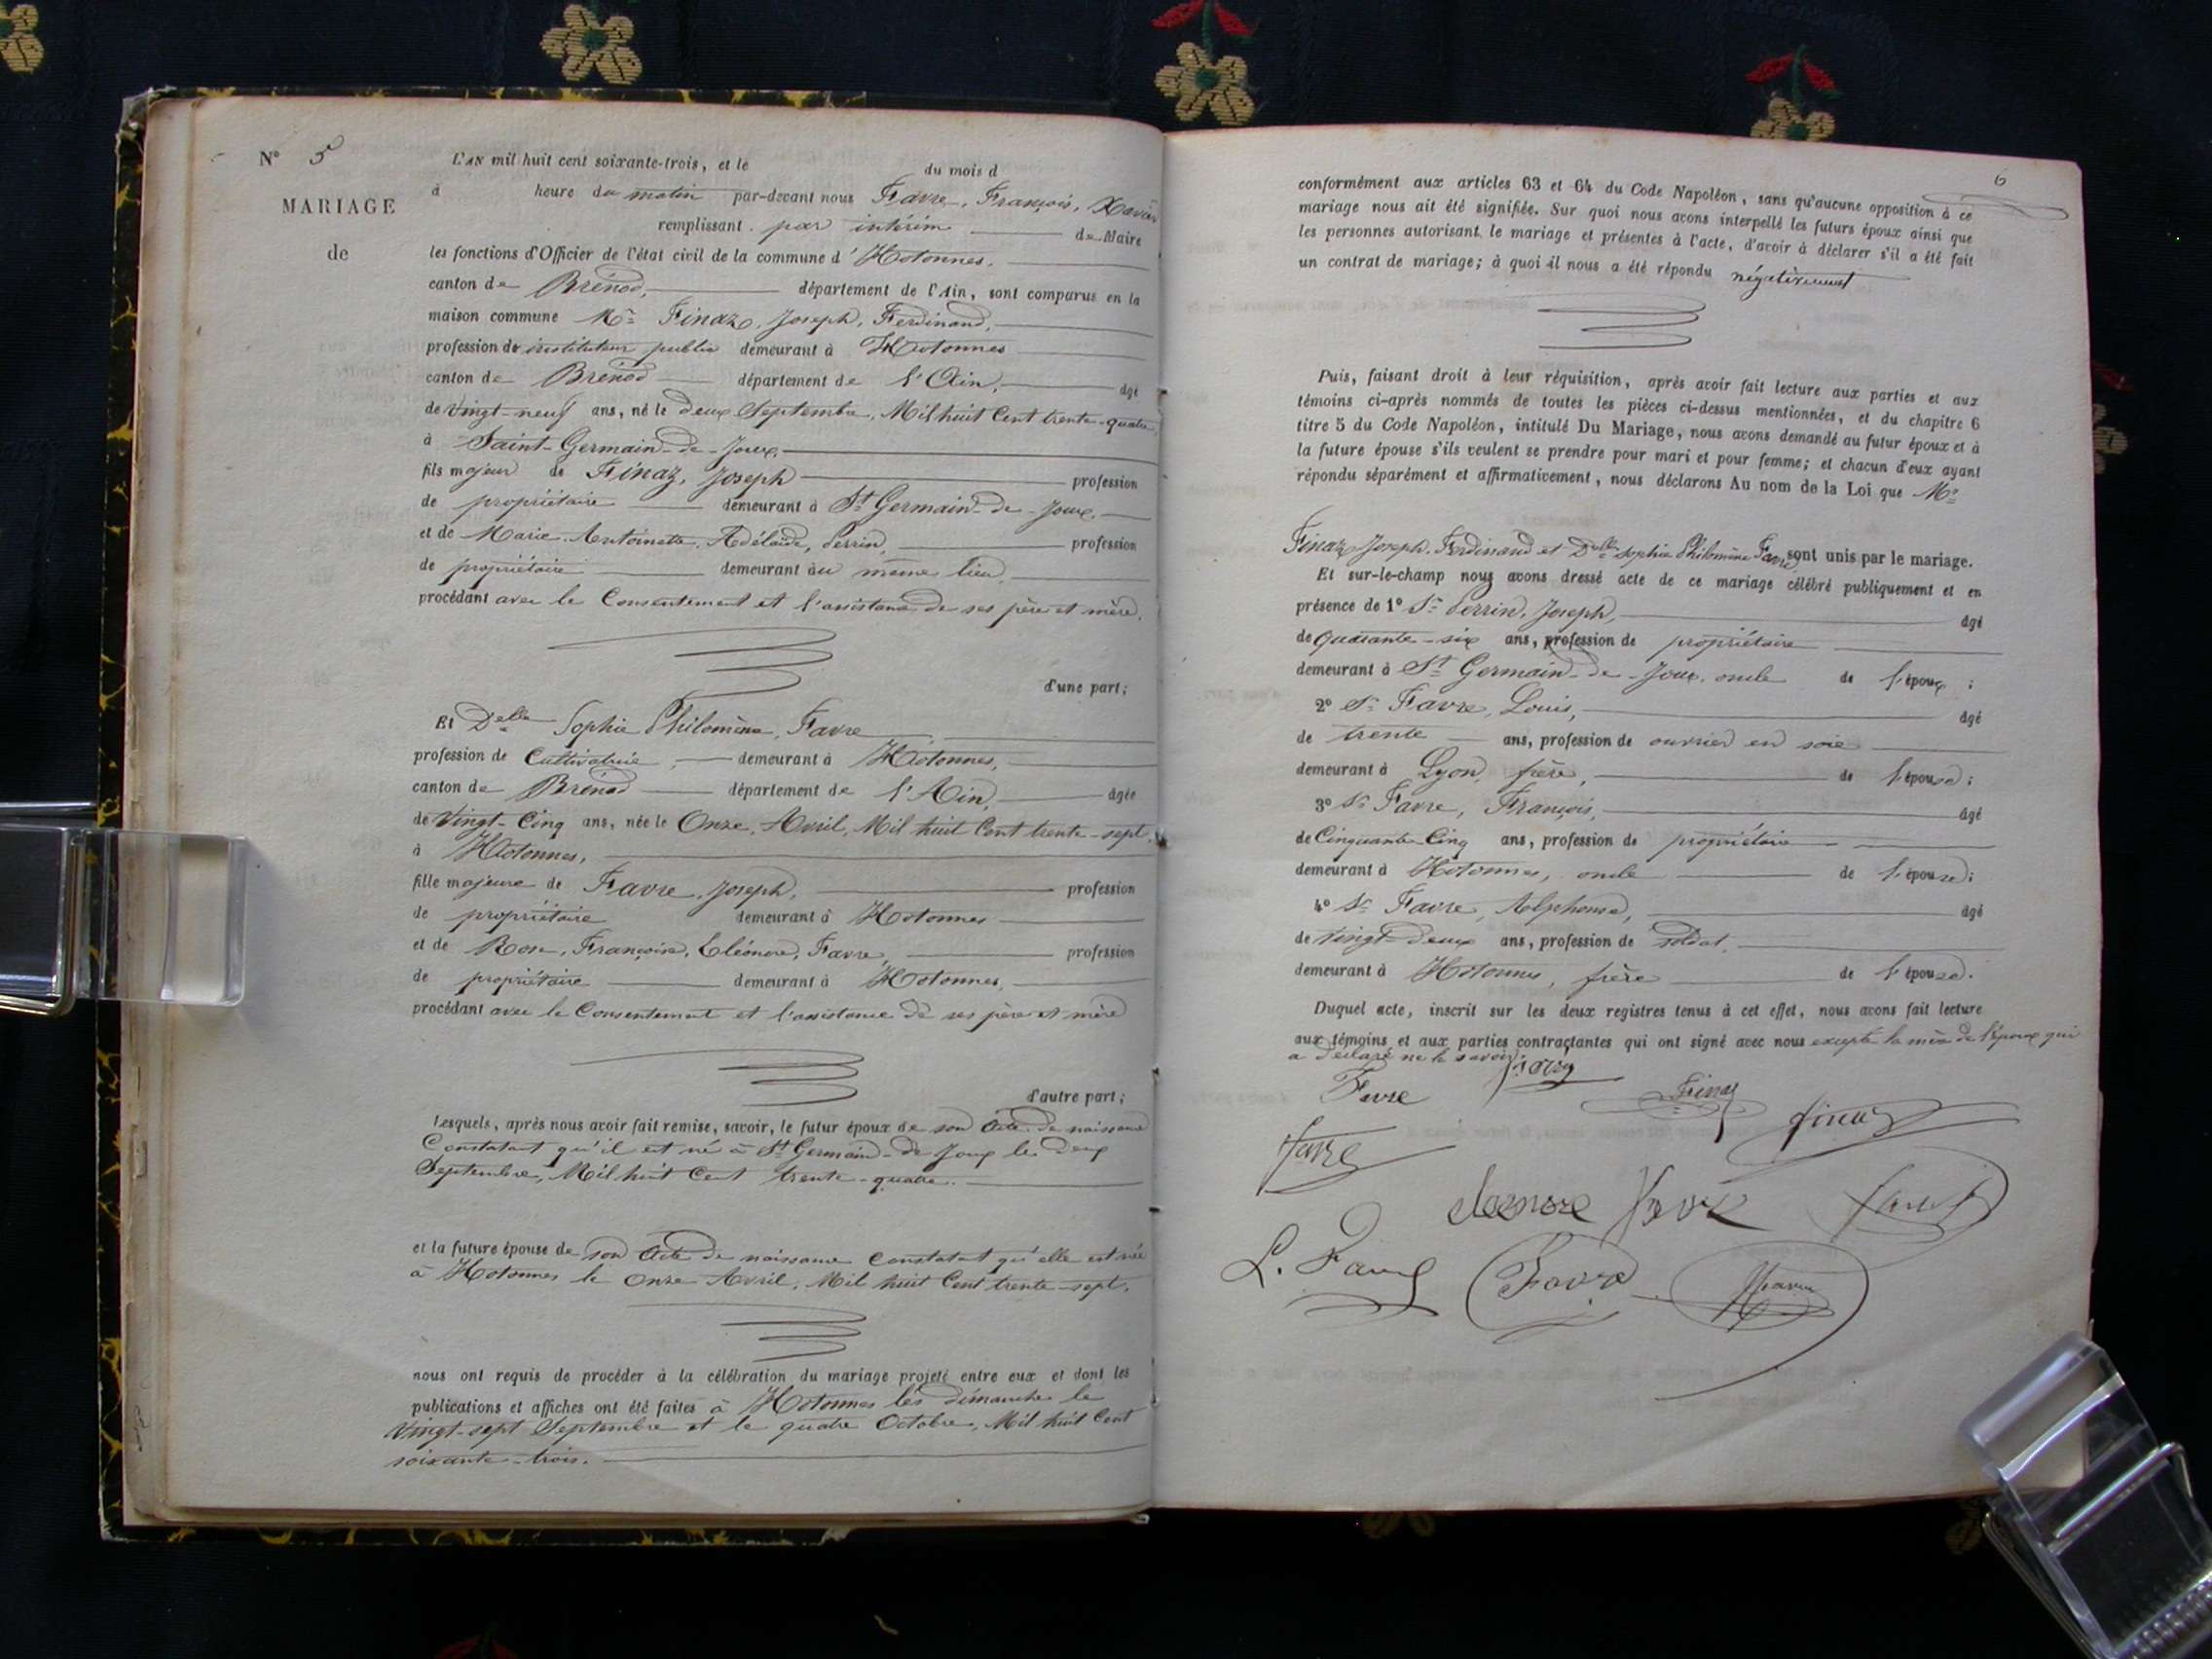 N° 5
MARIAGE
de
L'AN mil huit cent soixante-trois, et le du mois d
à heure du matin par-devant nous Favre, François, Xavier
remplissant par intérim de Maire
les fonctions d'Officier de l'état civil de la commune d'Hotonnes,
canton de Brénod, département de l'Ain, sont comparus en la
maison commune Mr Finaz, Joseph, Ferdinand,
profession de instituteur public demeurant à Hotonnes
canton de Brénod département de l'Ain, âgé
de vingt-neuf ans, né le deux Septembre, Mil huit Cent trente-quatre,
à Saint-Germain-de-Joux,
fils majeur de Finaz, Joseph profession
de propriétaire demeurant à St Germain-de-Joux,
et de Marie, Antoinette, Adélaïde, Perrin, profession
de propriétaire demeurant au même lieu,
procédant avec le Consentement et l'assistance de ses père et mère,
d'une part;
Et Delle Sophie Philomène, Favre
profession de Cultivatrice, demeurant à Hotonnes,
canton de Brénod département de l'Ain, âgée
de Vingt-Cinq ans, née le Onze, Avril, Mil huit Cent trente-sept,
à Hotonnes,
fille majeure de Favre, Joseph, profession
de propriétaire demeurant à Hotonnes
et de Rose, Françoise, Eléonore, Favre, profession
de propriétaire demeurant à Hotonnes,
procédant avec le Consentement et l'assistance de ses père et mère
d'autre part;
Lesquels, après nous avoir fait remise, savoir, le futur époux de son Acte de naissance
Constatant qu'il est né à St Germain-de Joux le deux
Septembre, Mil huit Cent trente-quatre.
et la future épouse de son Acte de naissance Constatant qu'elle est née
à Hotonnes le Onze Avril, Mil huit Cent trente-sept,
nous ont requis de procéder à la célébration du mariage projeté entre eux et dont les
publications et affiches ont été faites à Hotonnes les dimanches le
Vingt-sept Septembre et le quatre Octobre, Mil huit Cent
soixante-trois.
6
conformément aux articles 63 et 64 du Code Napoléon, sans qu'aucune opposition à ce
mariage nous ait été signifiée. Sur quoi nous avons interpellé les futurs époux ainsi que
les personnes autorisant le mariage et présentes à l'acte, d'avoir à déclarer s'il a été fait
un contrat de mariage; à quoi il nous a été répondu négativement
Puis, faisant droit à leur réquisition, après avoir fait lecture aux parties et aux
témoins ci-après nommés de toutes les pièces ci-dessus mentionnées, et du chapitre 6
titre 5 du Code Napoléon, intitulé Du Mariage, nous avons demandé au futur époux et à
la future épouse s'ils veulent se prendre pour mari et pour femme; et chacun d'eux ayant
répondu séparément et affirmativement, nous déclarons Au nom de la Loi que Mr
Finaz Joseph, Ferdinand et Delle Sophie Philomène Favre sont unis par le mariage.
Et sur-le-champ nous avons dressé acte de ce mariage célébré publiquement et en
présence de 1° Sr Perrin, Joseph, âgé
de quarante-six ans, profession de propriétaire
demeurant à St Germain-de-Joux, oncle de l'époux;
2° Sr Favre, Louis, âgé
de trente ans, profession de ouvrier en soie
demeurant à Lyon, frère, de l'épouse;
3° Sr Favre, François, âgé
de Cinquante-Cinq ans, profession de propriétaire
demeurant à Hotonnes, oncle de l'épouse;
4° Sr Favre, Alphonse, âgé
de Vingt-Deux ans, profession de soldat,
demeurant à Hotonnes, frère de l'épouse.
Duquel acte, inscrit sur les deux registres tenus à cet effet, nous avons fait lecture
aux témoins et aux parties contractantes qui ont signé avec nous excepté la mère de l'époux qui
a déclaré ne le savoir.
Favre
Finaz
finaz
favre
eleonore favre
L. Favre
Favre